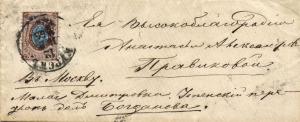 Ея Высокоблагородію
Анастасіи Александр.
Правиковой
Въ Москву.
Малая Дмитровка, Успенскій пере
домъ Богданова.